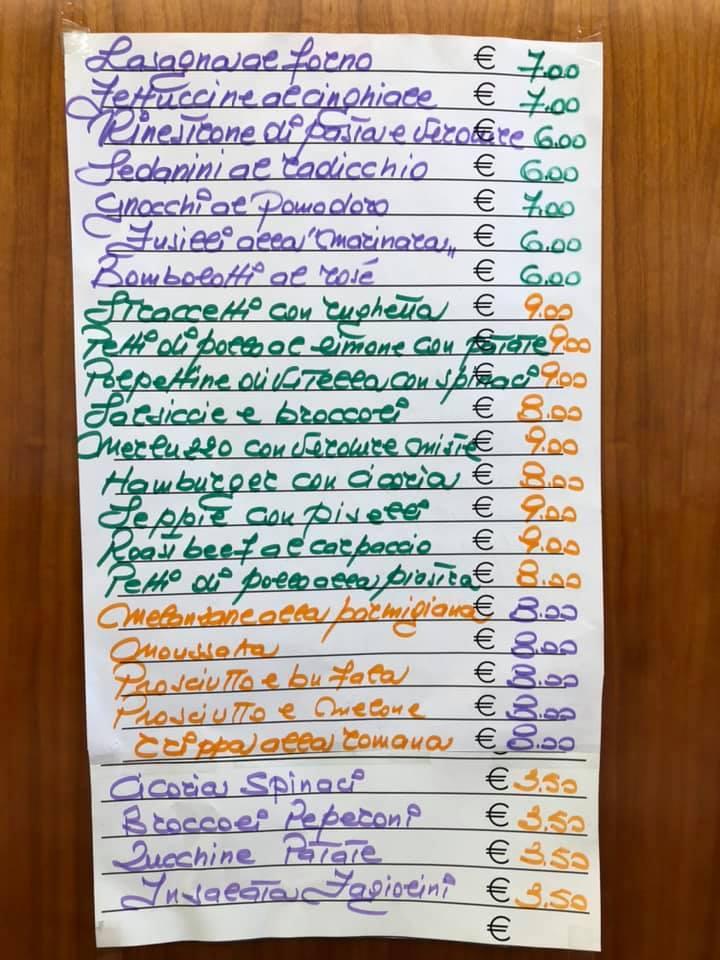 Lasagna al forno € 7.00
Fettuccine al cinghiale € 7.00
Minestrone di pasta e verdure € 6.00
Sedanini al radicchio € 6.00
Gnocchi al Pomodoro € 7.00
Fusilli alla "marinara" € 6.00
Bombolotti al rosé € 6.00
Straccetti con rughetta € 9.00
Petti di pollo al limone con patate € 9.00
Polpettine di vitella con spinaci € 9.00
Salsiccie e broccoli € 8.00
Merluzzo con verdure miste € 9.00
Hamburger con cicoria € 8.00
Seppie con piselli € 9.00
Roast beef al carpaccio € 9.00
Petti di pollo alla piastra € 8.00
Melanzane alla parmigiana € 8.00
Moussata € 8.00
Prosciutto e bufala € 8.00
Prosciutto e melone € 8.00
Trippa alla romana € 8.00
Cicoria Spinaci € 3.50
Broccoli Peperoni € 3.50
Zucchine Patate € 3.50
Insalata Fagiolini € 3.50
€